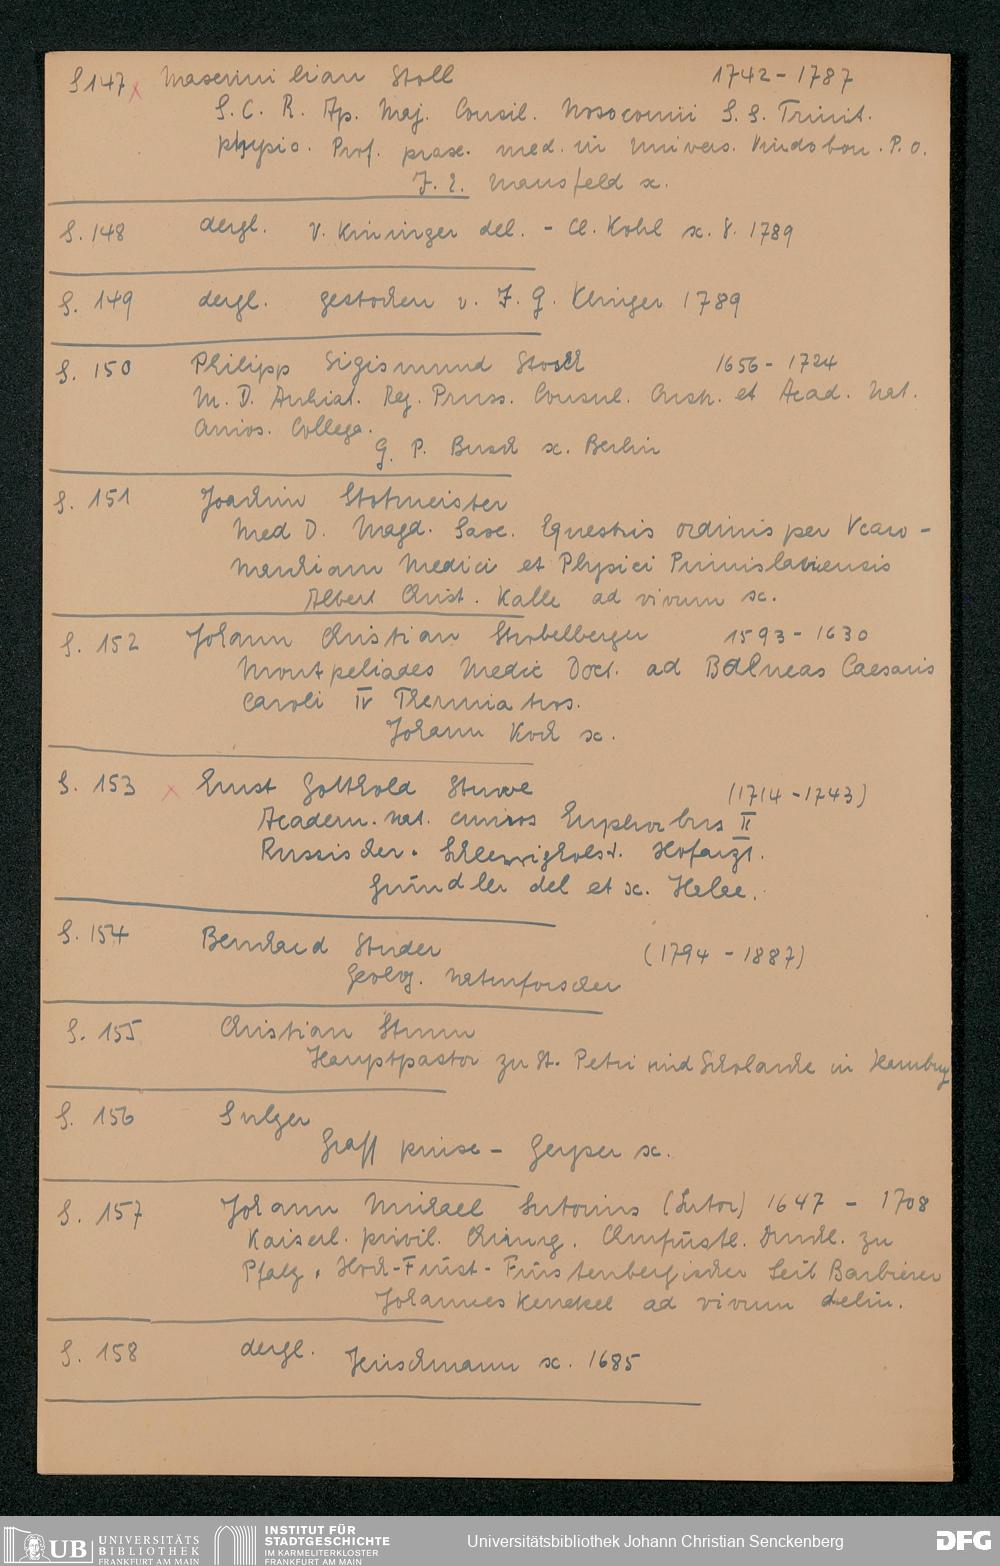 S 147 x Maximilian Stoll 1742 - 1787
S. C. R. Ap. Maj. Consil. Nosocomii S. S. Trinit.
physic. Prof. prax. med. in Univers. Vindobon. P. o.
J. E. Mansfeld sc.
S. 148 dergl. V. Kininger del. - Cl. Kohl sc. V. 1789
S. 149 dergl. gestochen v. J. G. Klinger 1789
S. 150 Philipp Sigismund Stosch 1656 - 1724
M. D. Archiat. Reg. Pruss. Consul. et Acad. Nat.
Curios. Collega.
G. P. Busch sc. Berlin
S. 151 Joachim Stotmeister
Med D. Magd. Saxo. Equestris ordinis per Vcaro-
Marchiam Medici et Physici Primislaviensis
Albert Christ. Kalle ad vivum sc.
S. 152 Johann Christian Strobelberger 1593 - 1630
Montpeliades Medic Doct. ad Balneas Caesaris
Caroli IV Thermiatros.
Johann Koch sc.
S. 153 x Ernst Gotthold Struve (1714 - 1743)
Academ. nat. curios Euphorbus II
Russischer. Schleswigholst. Hofarzt.
Gründler del et sc. Halae.
S. 154 Bernhard Studer (1794 - 1887)
Geolog. Naturforscher
S. 155 Christian Sturm
Hauptpastor zu St. Petri und Scholarche in Hamburg
S. 156 Sulzer
Graff pinxe - Geyser sc.
S. 157 Johann Michael Sutorius (Sutor) 1647 - 1708
Kaiserl. privil. Chirurg. Churfürstl. Durchl. zu
Pfalz, Hoch-Fürst-Fürstenbergischer Leib Barbierer
Johannes Kenckel ad vivum delin.
S. 158 dergl. Hirschmann sc. 1685
UB UNIVERSITÄTS
BIBLIOTHEK
FRANKFURT AM MAIN
INSTITUT FÜR
STADTGESCHICHTE
IM KARMELITERKLOSTER
FRANKFURT AM MAIN
Universitätsbibliothek Johann Christian Senckenberg
DFG